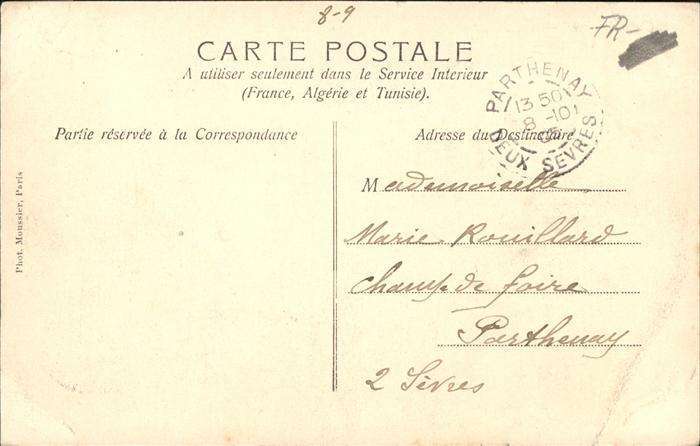 8-9
FR-
CARTE POSTALE
A utiliser seulement dans le Service Interieur
(France, Algérie et Tunisie).
PARTHENAY
13 50
8 -10
05
DEUX SÈVRES
Partie réservée à la Correspondance
Adresse du Destinataire
Mademoiselle
Marie Rouillard
Champ de foire
Parthenay
2 Sèvres
Phot. Moussier, Paris